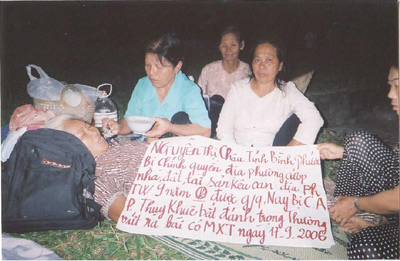 NGUYỄN Thị Châu Tỉnh Bình Phước
Bị chính quyền địa phương cướp
nhà, đất, tài sản kêu oan địa Ph
TW 9 năm được q/q. Nay Bị CA
P. Thụy Khuê bắt đánh trọng thương
vứt ra bãi cỏ MXT ngày 11.9.2006